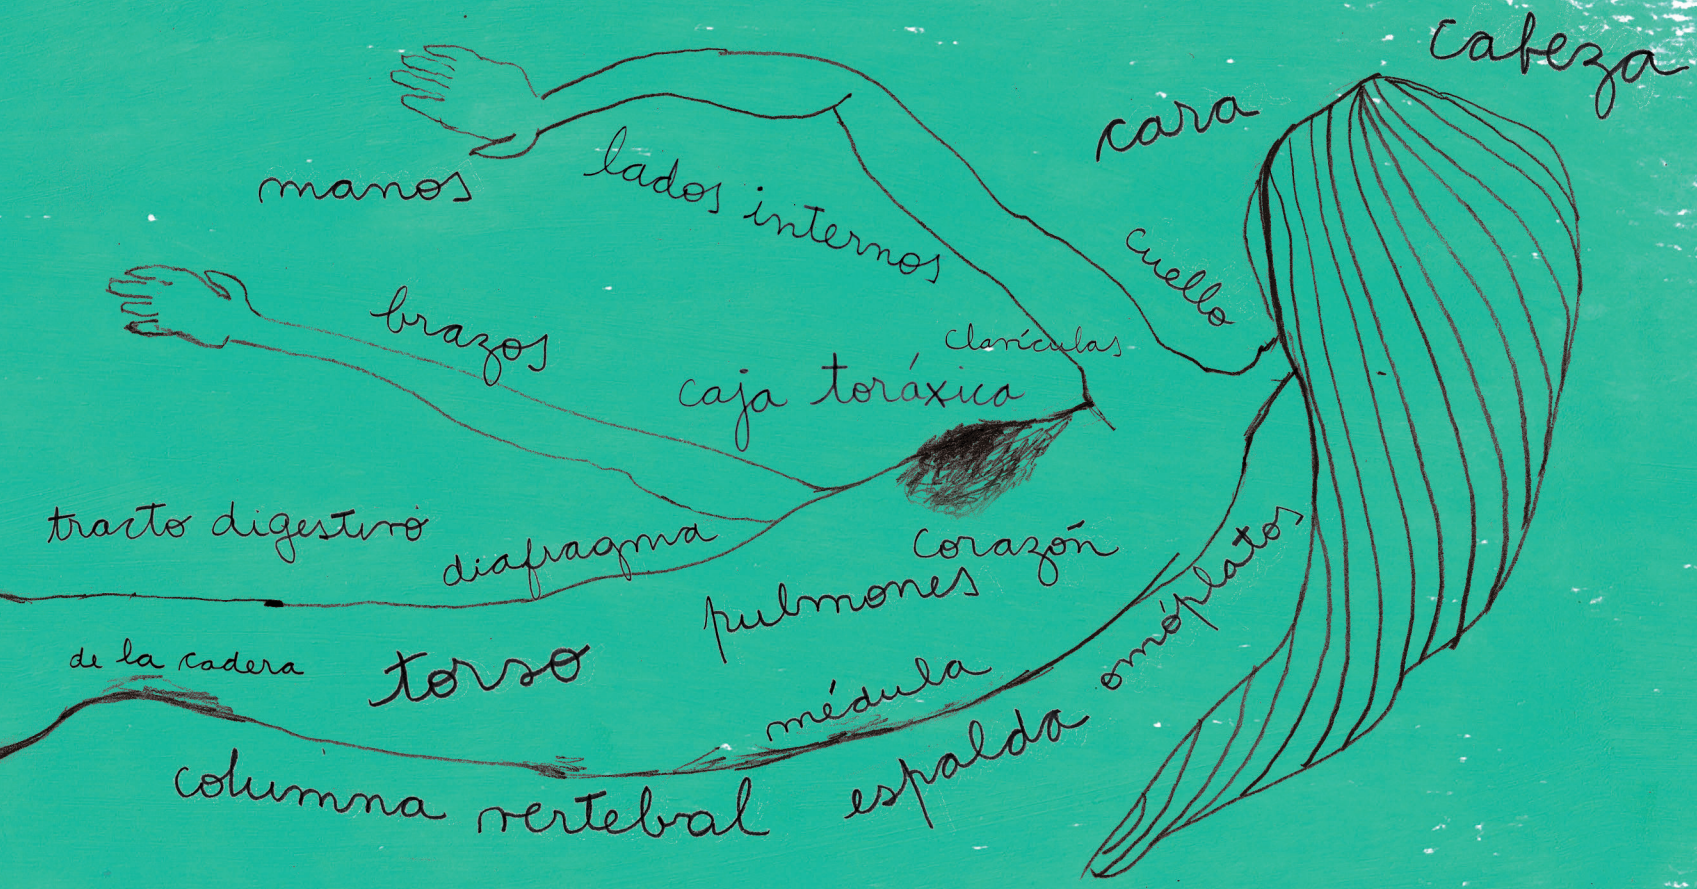 cabeza
cara
manos
lados internos
cuello
brazos
clavículas
caja toráxica
tracto digestivo
diafragma
corazón
pulmones
omóplatos
de la cadera
torso
médula
espalda
columna vertebral